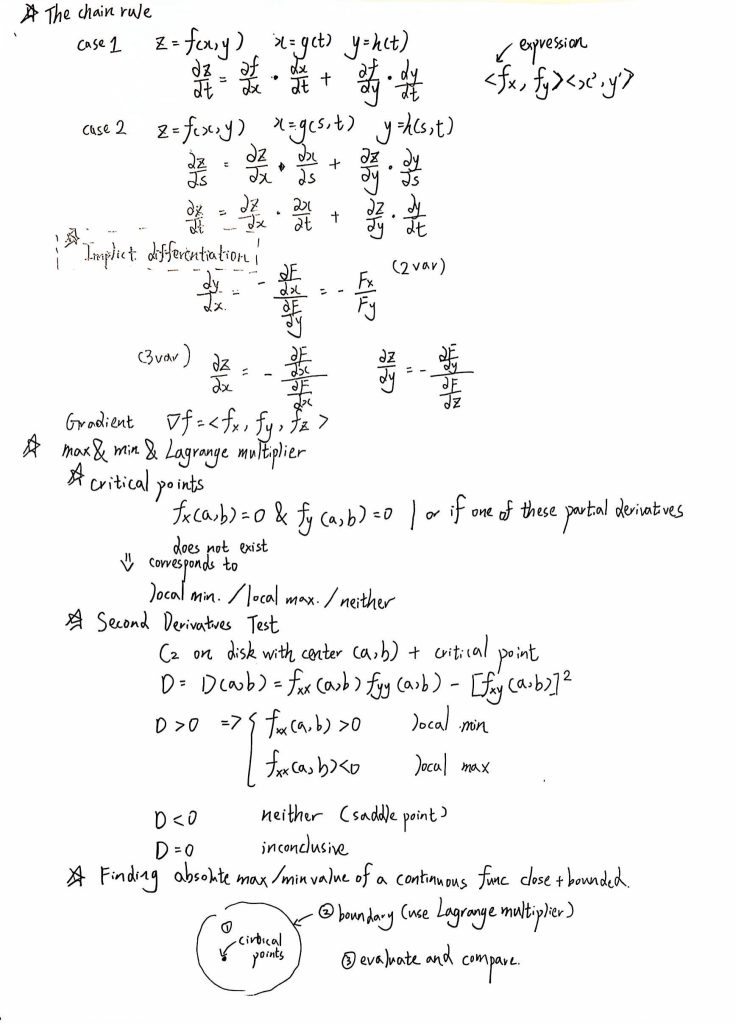 ☆ The chain rule
case 1 z = f(x,y) x = g(t) y = h(t)
∂z/∂t = ∂f/∂x · dx/dt + ∂f/∂y · dy/dt
expression
<fx, fy><x', y'>
case 2 z = f(x,y) x = g(s,t) y = h(s,t)
∂z/∂s = ∂z/∂x · ∂x/∂s + ∂z/∂y · ∂y/∂s
∂z/∂t = ∂z/∂x · ∂x/∂t + ∂z/∂y · ∂y/∂t
☆ Implict differentiation
dy/dx = - (∂F/∂x)/(∂F/∂y) = - Fx/Fy (2 var)
(3 var) ∂z/∂x = - (∂F/∂x)/(∂F/∂x) ∂z/∂y = - (∂F/∂y)/(∂F/∂z)
Gradient ∇f = <fx, fy, fz>
☆ max & min & Lagrange multiplier
☆ critical points
fx(a,b) = 0 & fy(a,b) = 0 | or if one of these partial derivatives
does not exist
⇓ corresponds to
local min. / local max. / neither
☆ Second Derivatives Test
C2 on disk with center (a,b) + critical point
D = D(a,b) = fxx(a,b) fyy(a,b) - [fxy(a,b)]²
D > 0 => { fxx(a,b) > 0 local min
fxx(a,b) < 0 local max
D < 0 neither (saddle point)
D = 0 inconclusive
☆ Finding absolute max/min value of a continuous func close + bounded.
① cirtical points
② boundary (use Lagrange multiplier)
③ evaluate and compare.